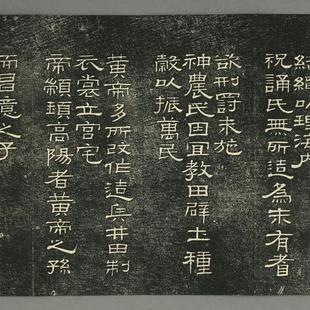 結繩以理海內
祝誦氏無所造為未有耆
欲刑罰未施
神農氏因宜教田辟土種
穀以振萬民
黃帝多所改作造兵井田制
衣裳立宮宅
帝顓頊高陽者黃帝之孫
而昌意之子